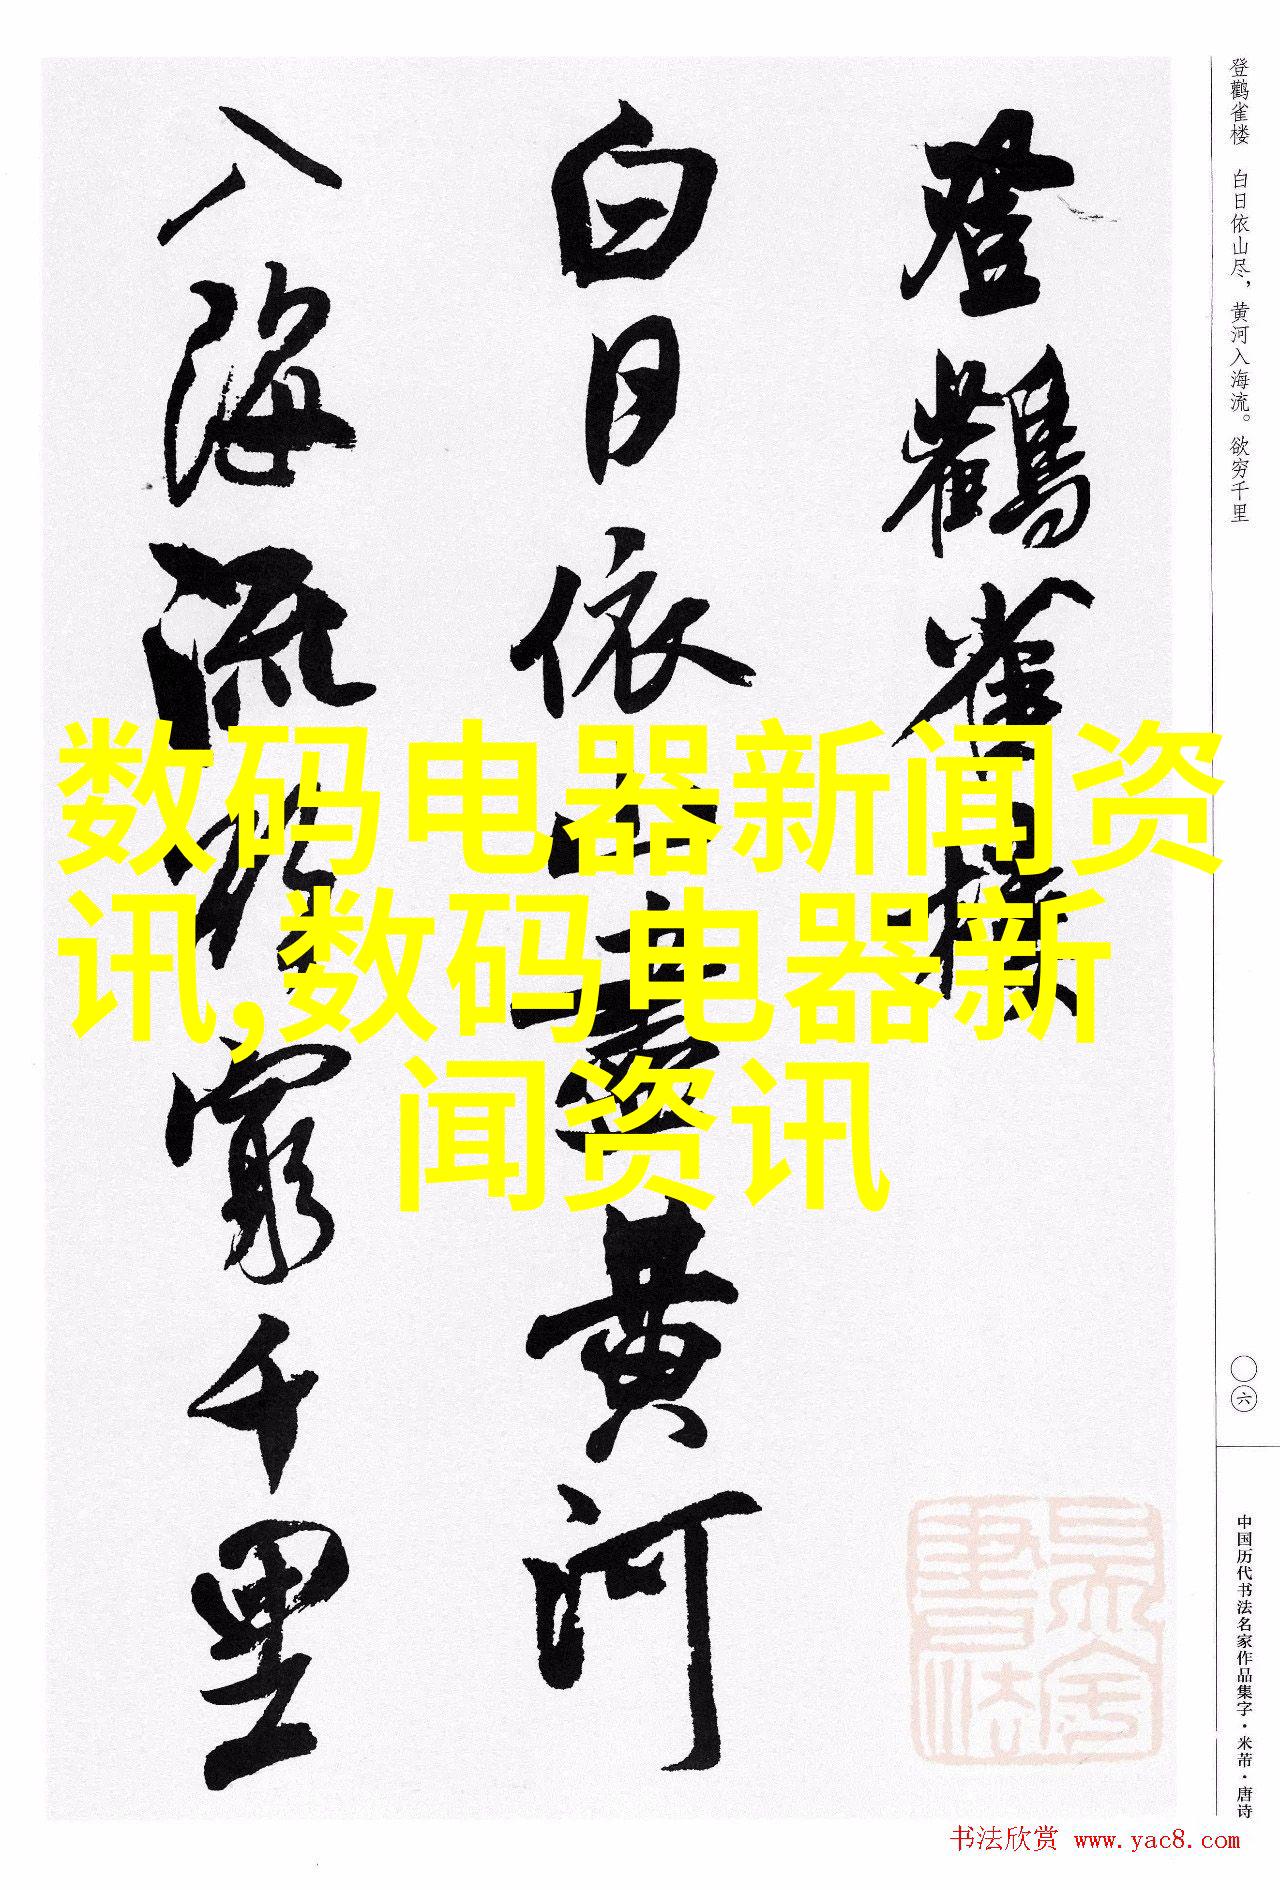 登鸛雀樓
白日依山盡黃河
入海流欲窮千里
登鹳雀楼 白日依山尽，黄河入海流。欲穷千里
〇六
中国历代书法名家作品集字·米芾·唐诗
数码电器新闻资
讯,数码电器新
闻资讯
书法欣赏 www.yac8.com